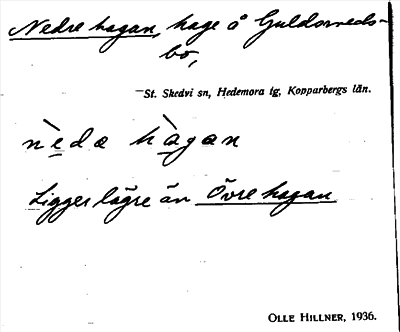 Nedre hagan, hage å Guldsmeds-
bo,
St. Skedvi sn, Hedemora tg, Kopparbergs län.
nèda hàgan
Ligger lägre än Övre hagan
OLLE HILLNER, 1936.